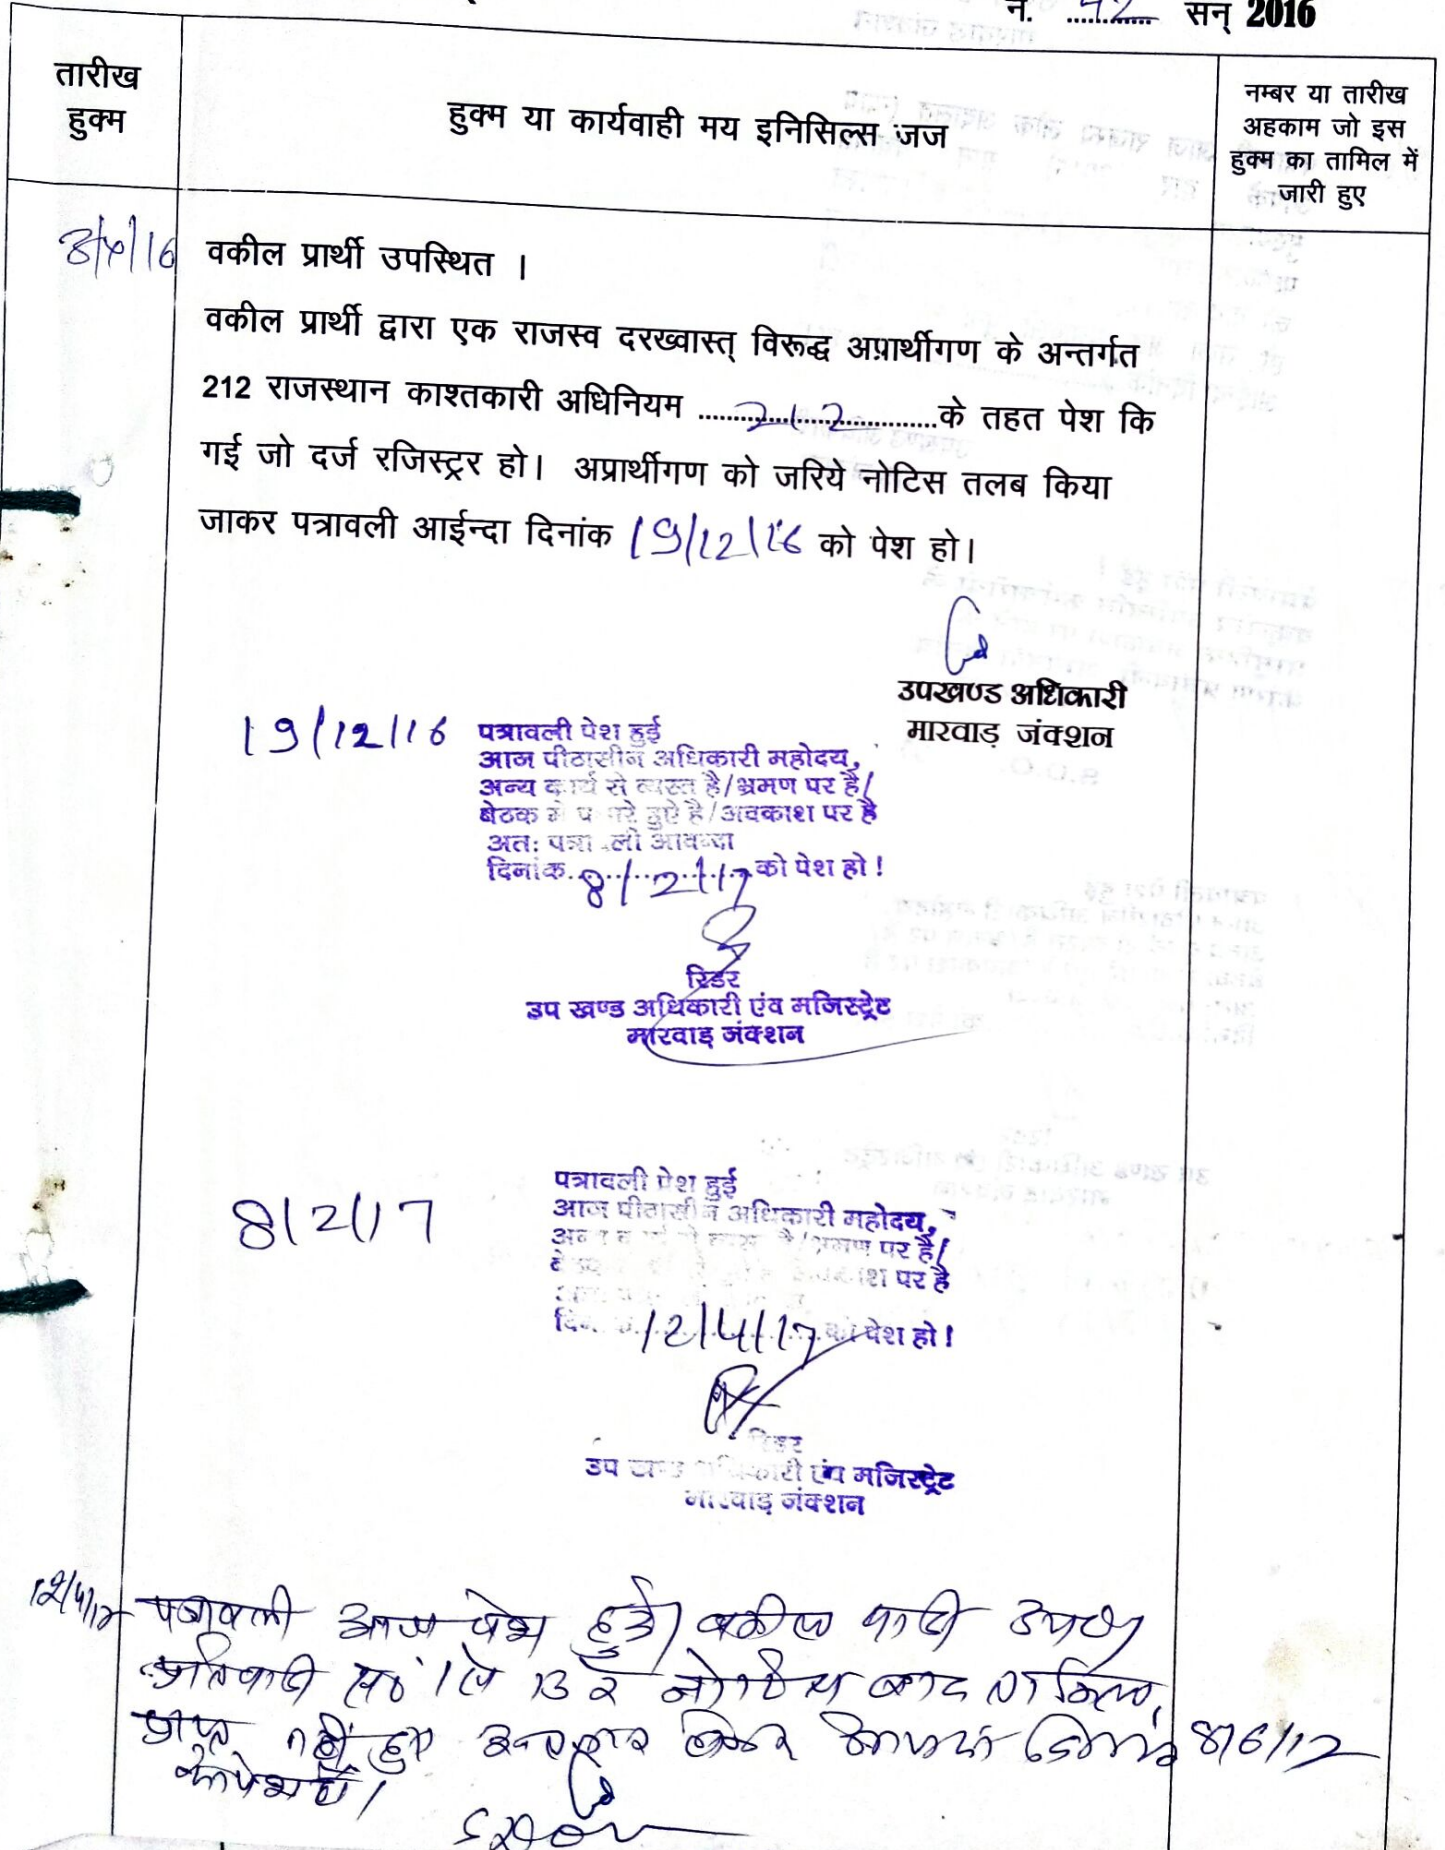 नं. 42 सन् 2016
तारीख
हुक्म
हुक्म या कार्यवाही मय इनिसिल्स जज
नम्बर या तारीख
अहकाम जो इस
हुक्म का तामिल में
जारी हुए
वकील प्रार्थी उपस्थित ।
वकील प्रार्थी द्वारा एक राजस्व दरख्वास्त् विरूद्ध अप्रार्थीगण के अन्तर्गत
212 राजस्थान काश्तकारी अधिनियम .....212.....के तहत पेश कि
गई जो दर्ज रजिस्ट्रर हो। अप्रार्थीगण को जरिये नोटिस तलब किया
जाकर पत्रावली आईन्दा दिनांक 19/12/16 को पेश हो।
उपखण्ड अधिकारी
मारवाड़ जंक्शन
19/12/16
पत्रावली पेश हुई
आज पीठासीन अधिकारी महोदय,
अन्य कार्य से व्यस्त है/भ्रमण पर है/
बेठक मे पधारे हुऐ है/अवकाश पर है
अतः पत्रावली आवन्दा
दिनांक 8/2/17 को पेश हो !
रिडर
उप खण्ड अधिकारी एंव मजिस्ट्रेट
मारवाड़ जंक्शन
8/2/17
पत्रावली पेश हुई
आज पीठासीन अधिकारी महोदय,
भ्रमण पर है/
पर है
12/4/17 को पेश हो !
रिडर
उप खण्ड अधिकारी एंव मजिस्ट्रेट
मारवाड़ जंक्शन
पत्रावली आज पेश हुई। वकील वादी
प्रतिवादी सं 1 से 13 के नोटिस बाद तामिल
प्राप्त नहीं हुए
को पेश हो।